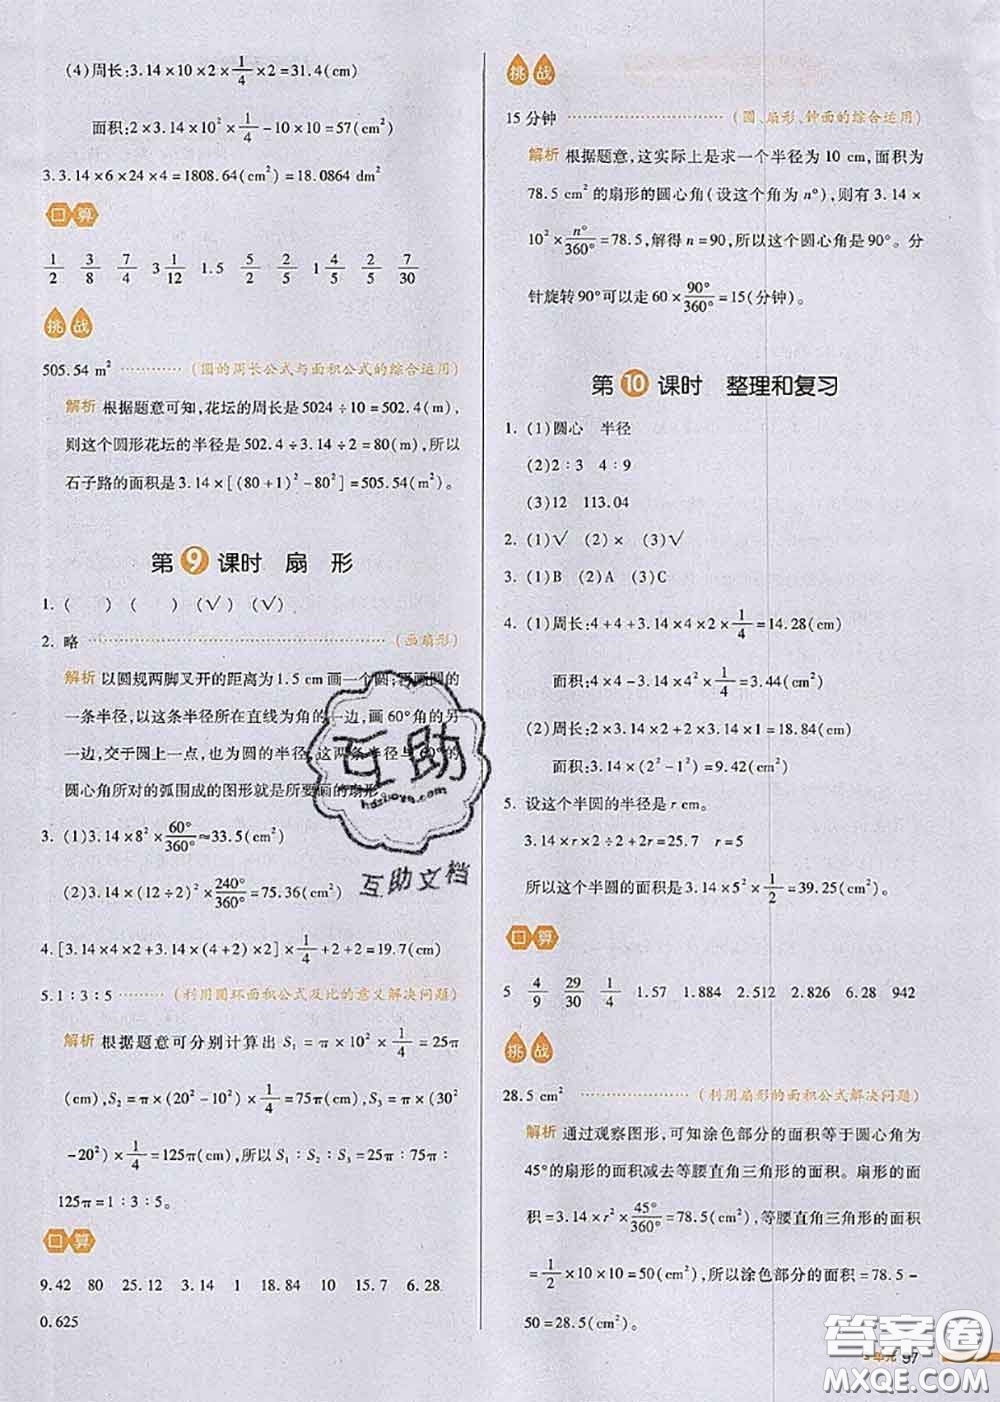 (4)周长:3.14×10×2×1/4×2=31.4(cm)
面积:2×3.14×10²×1/4-10×10=57(cm²)
3.3.14×6×24×4=1808.64(cm²)=18.0864 dm²
口算
1/2 3/8 7/4 3 1/12 1.5 5/2 2/5 1 4/5 2/5 7/30
挑战
505.54 m² (圆的周长公式与面积公式的综合运用)
解析 根据题意可知,花坛的周长是5024÷10=502.4(m),
则这个圆形花坛的半径是502.4÷3.14÷2=80(m),所以
石子路的面积是3.14×[(80+1)²-80²]=505.54(m²)。
第9课时 扇 形
1.( ) ( ) (√) (√)
2. 略 (画扇形)
解析 以圆规两脚叉开的距离为1.5 cm画一个圆;再画圆的
一条半径,以这条半径所在直线为角的一边,画60°角的另
一边,交于圆上一点,也为圆的半径,这两条半径与60°的
圆心角所对的弧围成的图形就是所要画的扇形。
3. (1)3.14×8²×60°/360°≈33.5(cm²)
(2)3.14×(12÷2)²×240°/360°=75.36(cm²)
4.[3.14×4×2+3.14×(4+2)×2]×1/4+2+2=19.7(cm)
5.1∶3∶5 (利用圆环面积公式及比的意义解决问题)
解析 根据题意可分别计算出 S₁=π×10²×1/4=25π
(cm),S₂=π×(20²-10²)×1/4=75π(cm),S₃=π×(30²
-20²)×1/4=125π(cm),所以 S₁∶S₂∶S₃=25π∶75π∶
125π=1∶3∶5。
口算
9.42 80 25.12 3.14 1 18.84 10 15.7 6.28
0.625
挑战
15分钟 (圆、扇形、钟面的综合运用)
解析 根据题意,这实际上是求一个半径为10 cm,面积为
78.5 cm²的扇形的圆心角(设这个角为 n°),则有3.14×
10²×n°/360°=78.5,解得 n=90,所以这个圆心角是90°。分
针旋转90°可以走60×90°/360°=15(分钟)。
第10课时 整理和复习
1. (1)圆心 半径
(2)2∶3 4∶9
(3)12 113.04
2. (1)√ (2)× (3)√
3. (1)B (2)A (3)C
4. (1)周长:4+4+3.14×4×2×1/4=14.28(cm)
面积:4×4-3.14×4²×1/4=3.44(cm²)
(2)周长:2×3.14×2+2×3.14×1=18.84(cm)
面积:3.14×(2²-1²)=9.42(cm²)
5. 设这个半圆的半径是 r cm。
3.14×r×2÷2+2r=25.7 r=5
所以这个半圆的面积是3.14×5²×1/2=39.25(cm²)。
口算
5 4/9 29/30 1/4 1.57 1.884 2.512 2.826 6.28 942
挑战
28.5 cm² (利用扇形的面积公式解决问题)
解析 通过观察图形,可知涂色部分的面积等于圆心角为
45°的扇形的面积减去等腰直角三角形的面积。扇形的面
积=3.14×r²×45°/360°=78.5(cm²),等腰直角三角形的面积
=1/2×10×10=50(cm²),所以涂色部分的面积=78.5-
50=28.5(cm²)。
单元 97
互助
hdzuoye.com
互助文档
答案圈
MXQE.COM